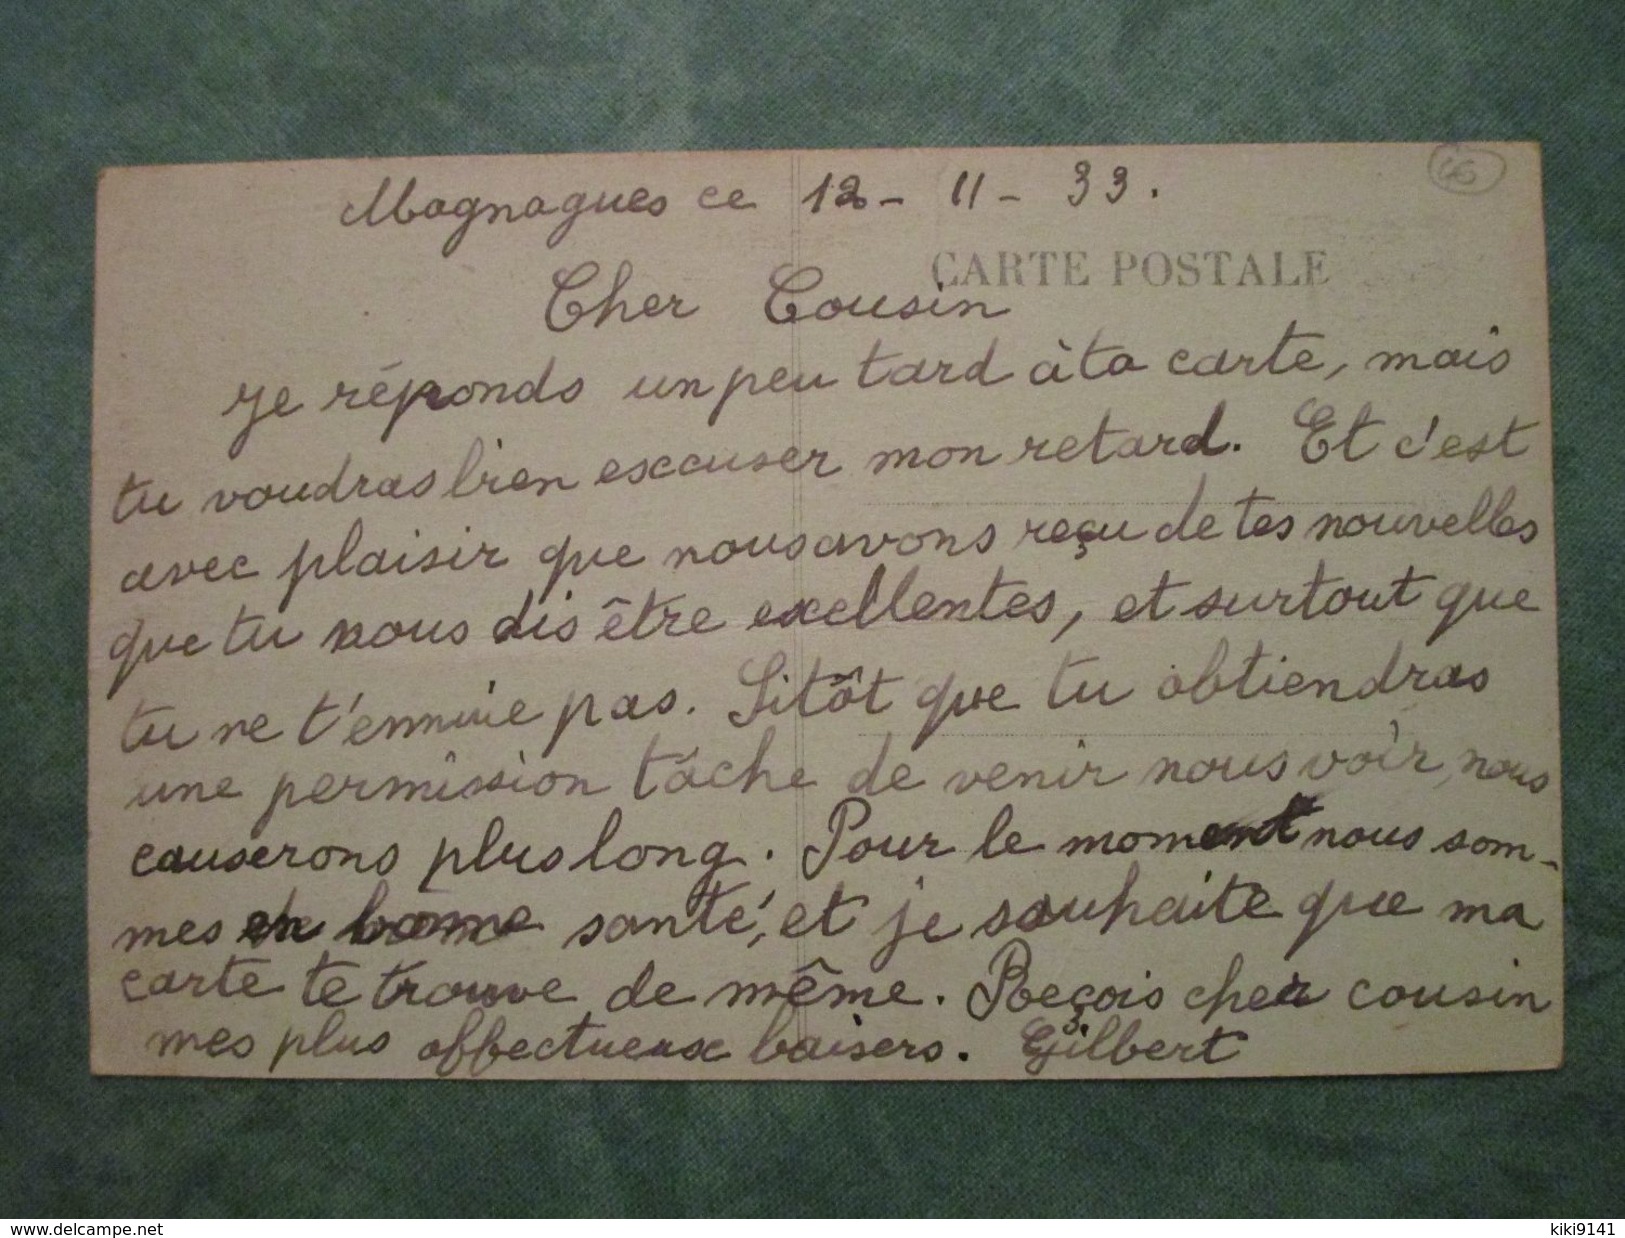 46
Magnagues ce 12-11-33.
CARTE POSTALE
Cher Cousin
Je réponds un peu tard à ta carte, mais
tu voudras bien excuser mon retard. Et c'est
avec plaisir que nous avons reçu de tes nouvelles
que tu nous dis être excellentes, et surtout que
tu ne t'ennuie pas. Sitôt que tu obtiendras
une permission tâche de venir nous voir, nous
causerons plus long. Pour le moment nous som-
mes en bonne santé, et je souhaite que ma
carte te trouve de même. Reçois cher cousin
mes plus affectueux baisers. Gilbert
www.delcampe.net
kiki9141